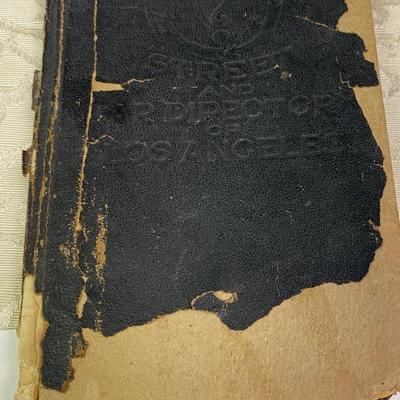 STREET
AND
AR DIRECTOR
OF
LOS ANGELES